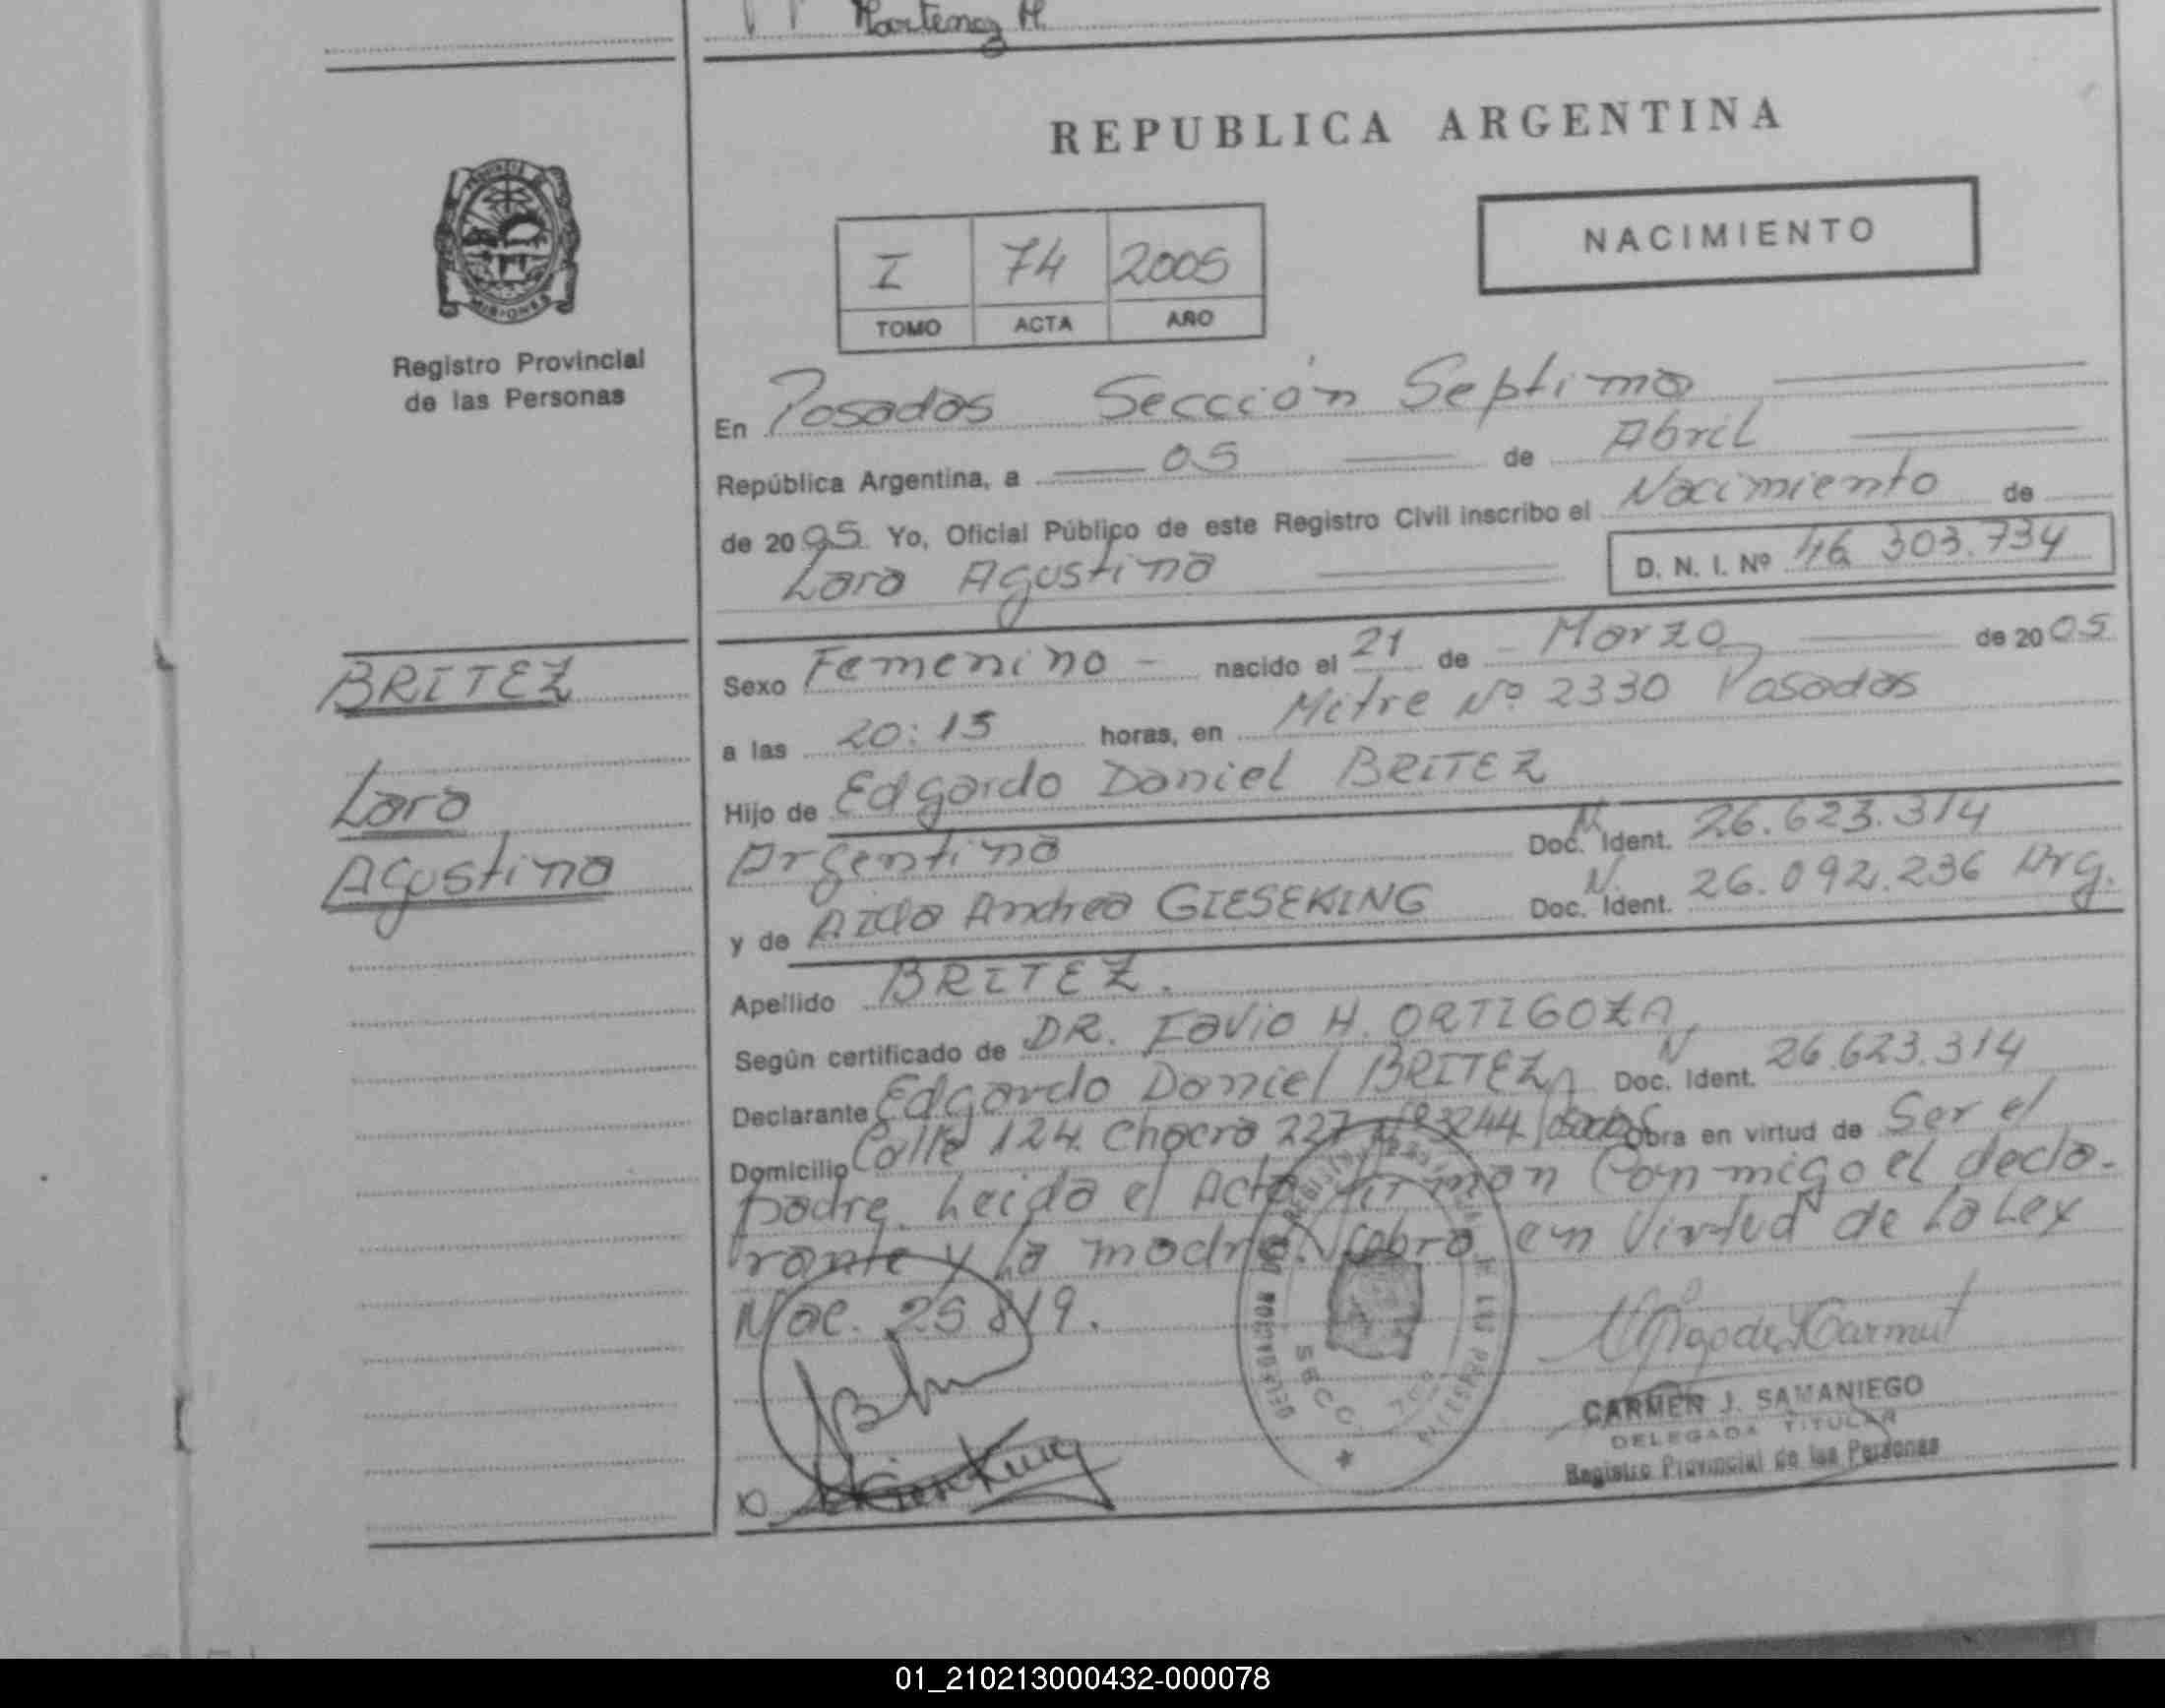 Martinez M.
REPUBLICA ARGENTINA
NACIMIENTO
I 74 2005
TOMO ACTA AÑO
PROVINCIA DE
MISIONES
Registro Provincial
de las Personas
En Posadas Sección Septima
República Argentina, a 05 de Abril
de 2005 Yo, Oficial Público de este Registro Civil inscribo el Nacimiento de
Lara Agustina D. N. I. Nº 46 303.734
BRITEZ
Lara
Agustina
Sexo Femenino - nacido el 21 de - Marzo de 2005
a las 20:15 horas, en Mitre Nº 2330 Posadas
Hijo de Edgardo Daniel BRITEZ
Argentino Doc. N. Ident. 26.623.314
y de Andrea GIESEKING Doc. N. Ident. 26.092.236 Arg.
Apellido BRITEZ.
Según certificado de DR. Favio H. ORTIGOZA
Declarante Edgardo Daniel BRITEZ Doc. N Ident. 26.623.314
Domicilio Calle 124 Chacra 227 3244 Obra en virtud de Ser el
padre. Leida el Acta firman Conmigo el decla-
rante y la madre. Obra en Virtud de La Ley
Nac. 25819.
SECC. 7ma
CARMEN J. SAMANIEGO
DELEGADA TITULAR
Registro Provincial de las Personas
01_210213000432-000078